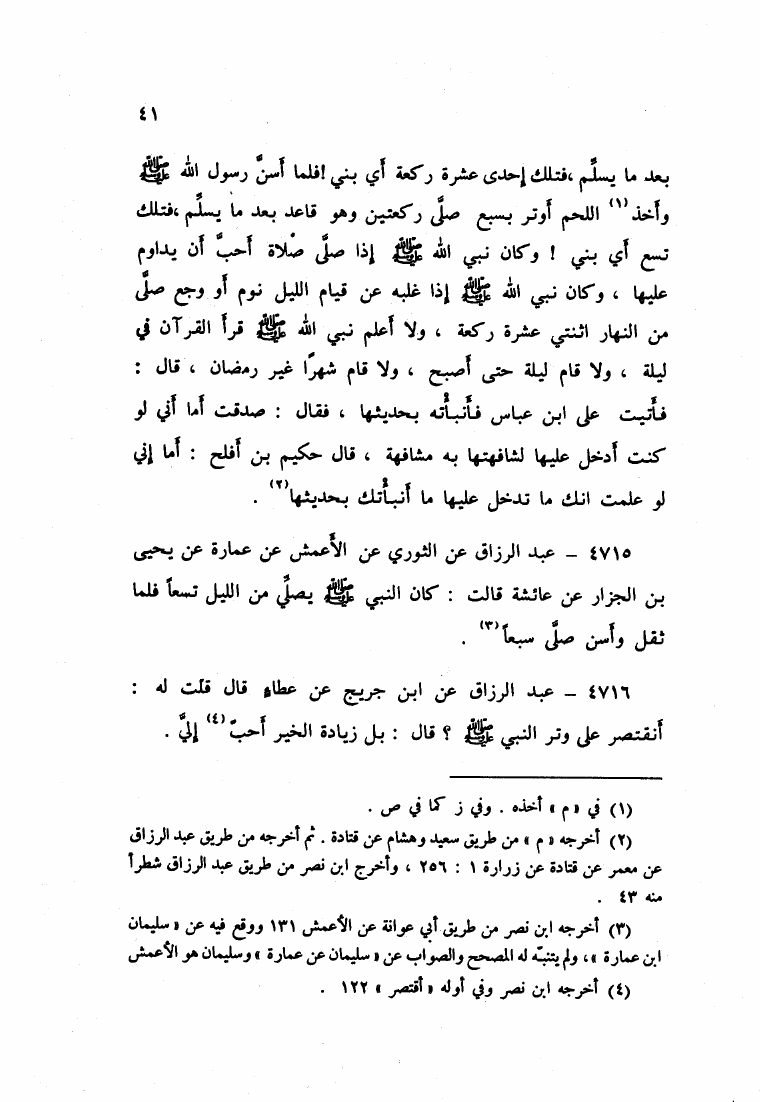 ٤١
بعد ما يسلِّم ،فتلك إحدى عشرة ركعة أي بني !فلما أَسنَّ رسول الله ﷺ
وأخذ(١) اللحم أوتر بسبع صلَّى ركعتين وهو قاعد بعد ما يسلِّم ،فتلك
تسع أي بني ! وكان نبي الله ﷺ إذا صلَّى صلاة أحبَّ أن يداوم
عليها ، وكان نبي الله ﷺ إذا غلبه عن قيام الليل نوم أو وجع صلَّى
من النهار اثنتي عشرة ركعة ، ولا أعلم نبي الله ﷺ قرأ القرآن في
ليلة ، ولا قام ليلة حتى أصبح ، ولا قام شهرًا غير رمضان ، قال :
فأتيت على ابن عباس فأنبأْته بحديثها ، فقال : صدقت أما أني لو
كنت أدخل عليها لشافهتها به مشافهة ، قال حكيم بن أفلح : أما إني
لو علمت انك ما تدخل عليها ما أنبأْتك بحديثها(٢) .
٤٧١٥ – عبد الرزاق عن الثوري عن الأَعمش عن عمارة عن يحيى
بن الجزار عن عائشة قالت : كان النبي ﷺ يصلِّي من الليل تسعاً فلما
ثقل وأَسن صلَّى سبعاً(٣) .
٤٧١٦ – عبد الرزاق عن ابن جريج عن عطاءٍ قال قلت له :
أنقتصر على وتر النبي ﷺ ؟ قال : بل زيادة الخير أحبّ(٤) إليَّ .
(١) في « م » أخذه . وفي ز كما في ص .
(٢) أخرجه « م » من طريق سعيد وهشام عن قتادة . ثم أخرجه من طريق عبد الرزاق
عن معمر عن قتادة عن زرارة ١ : ٢٥٦ ، وأخرج ابن نصر من طريق عبد الرزاق شطراً
منه ٤٣ .
(٣) أخرجه ابن نصر من طريق أبي عوانة عن الأعمش ١٣١ ووقع فيه عن « سليمان
ابن عمارة » ، ولم يتنبّه له المصحح والصواب عن « سليمان عن عمارة » وسليمان هو الأعمش
(٤) أخرجه ابن نصر وفي أوله « أقتصر » ١٢٢ .